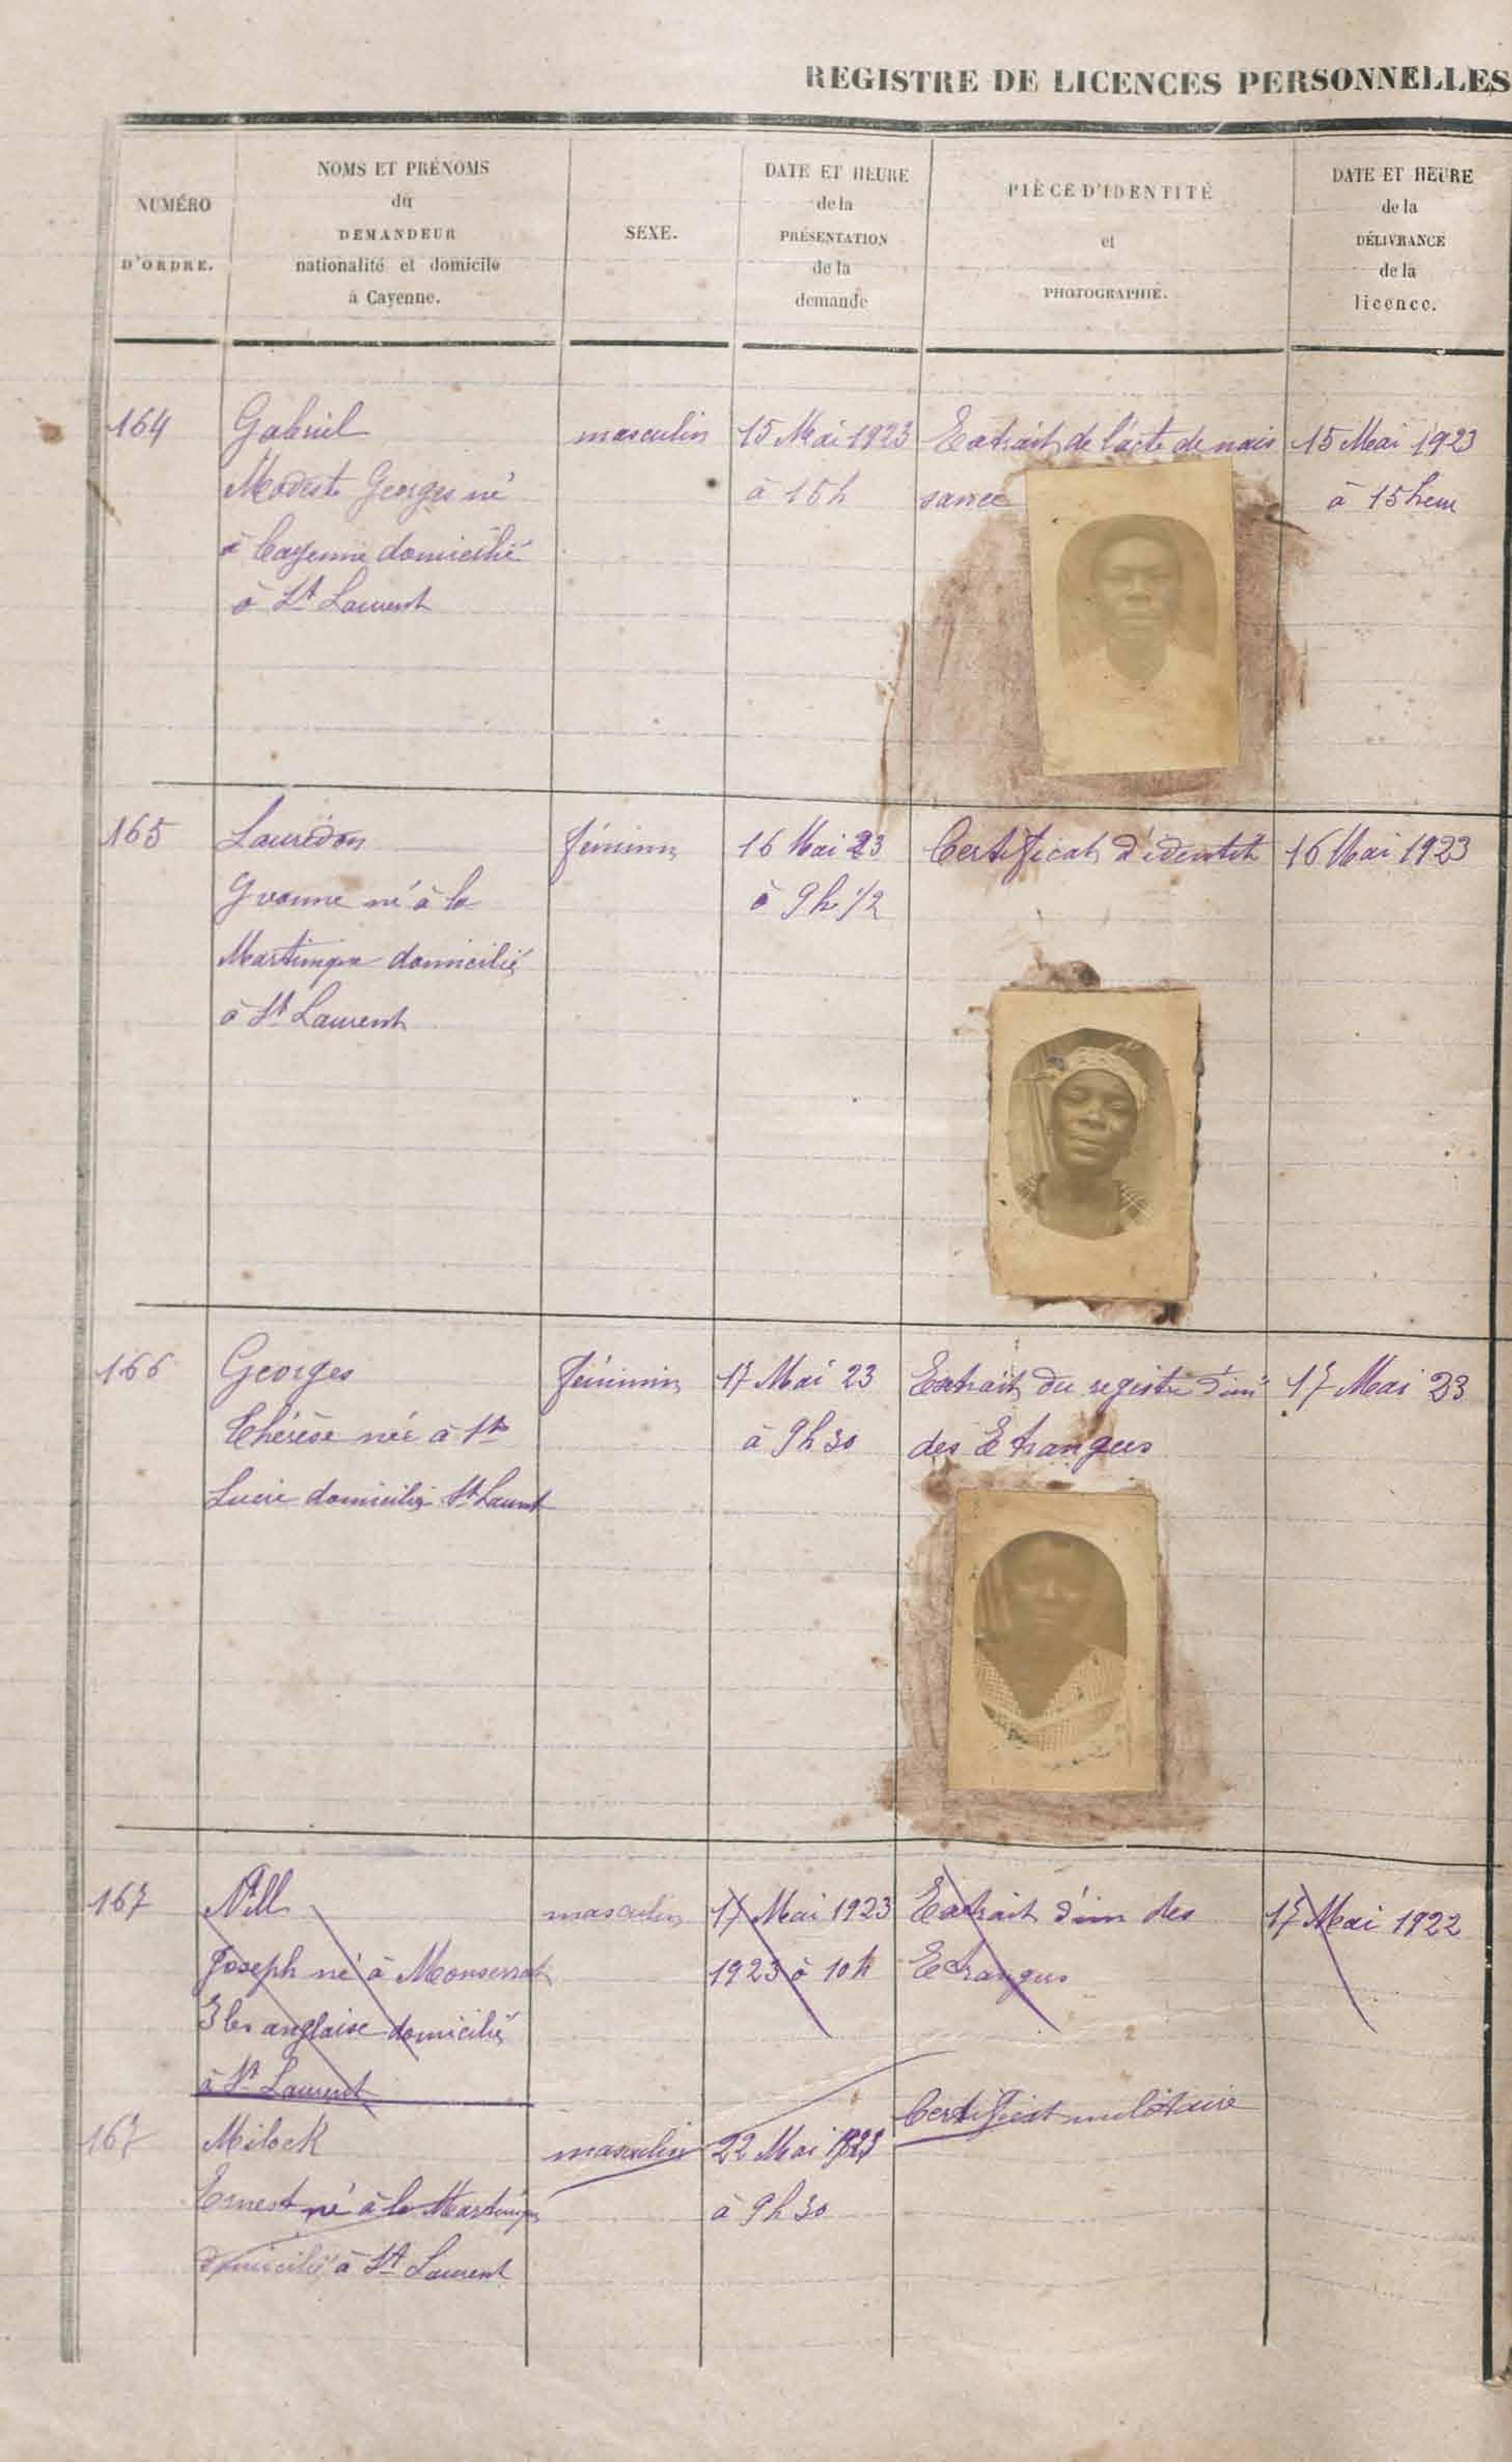 REGISTRE DE LICENCES PERSONNELLES
NUMÉRO
D'ORDRE.
NOMS ET PRÉNOMS
du
DEMANDEUR
nationalité et domicile
à Cayenne.
SEXE.
DATE ET HEURE
de la
PRÉSENTATION
de la
demande
PIÈCE D'IDENTITÉ
et
PHOTOGRAPHIE.
DATE ET HEURE
de la
DÉLIVRANCE
de la
licence.
164
Gabriel
Modeste Georges né
à Cayenne domicilié
à St Laurent
masculin
15 Mai 1923
à 15h
Extrait de l'acte de nais
sance
15 Mai 1923
à 15 heu
165
Laurédon
Yvonne né à la
Martinique domicilié
à St Laurent
féminin
16 Mai 23
à 9h 1/2
Certificat d'identité
16 Mai 1923
166
Georges
Thérèse née à Ste
Lucie domicilié St Laurent
féminin
17 Mai 23
à 9h30
Extrait du registre d'im
des Etrangers
17 Mai 23
167
Joseph né à Monserrat
Iles anglaise domicilié
à St Laurent
masculin
17 Mai 1923
1923 à 10h
Extrait d'im des
Etrangers
17 Mai 1922
167
Milock
Ernest né à la Martinique
domicilié à St Laurent
masculin
22 Mai 1923
à 9h30
Certificat militaire